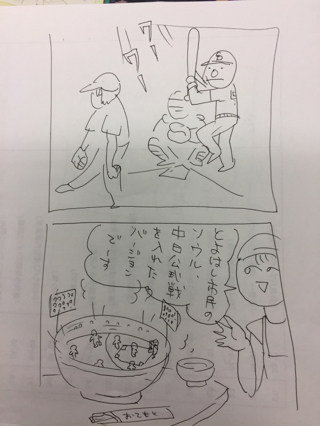 ワー
ワー
とよはしお母の
ソウル、
中日公式戦
を入れた
バージョン
でーす
おてもと